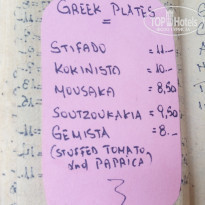 GREEK PLATES
=
STIFADO = 11.-
KOKINISTO = 10.-
MOUSAKA = 8,50
SOUTZOUKAKIA = 9,50
GEMISTA = 8.-
(STUFFED TOMATO,
and PAPRICA)
3